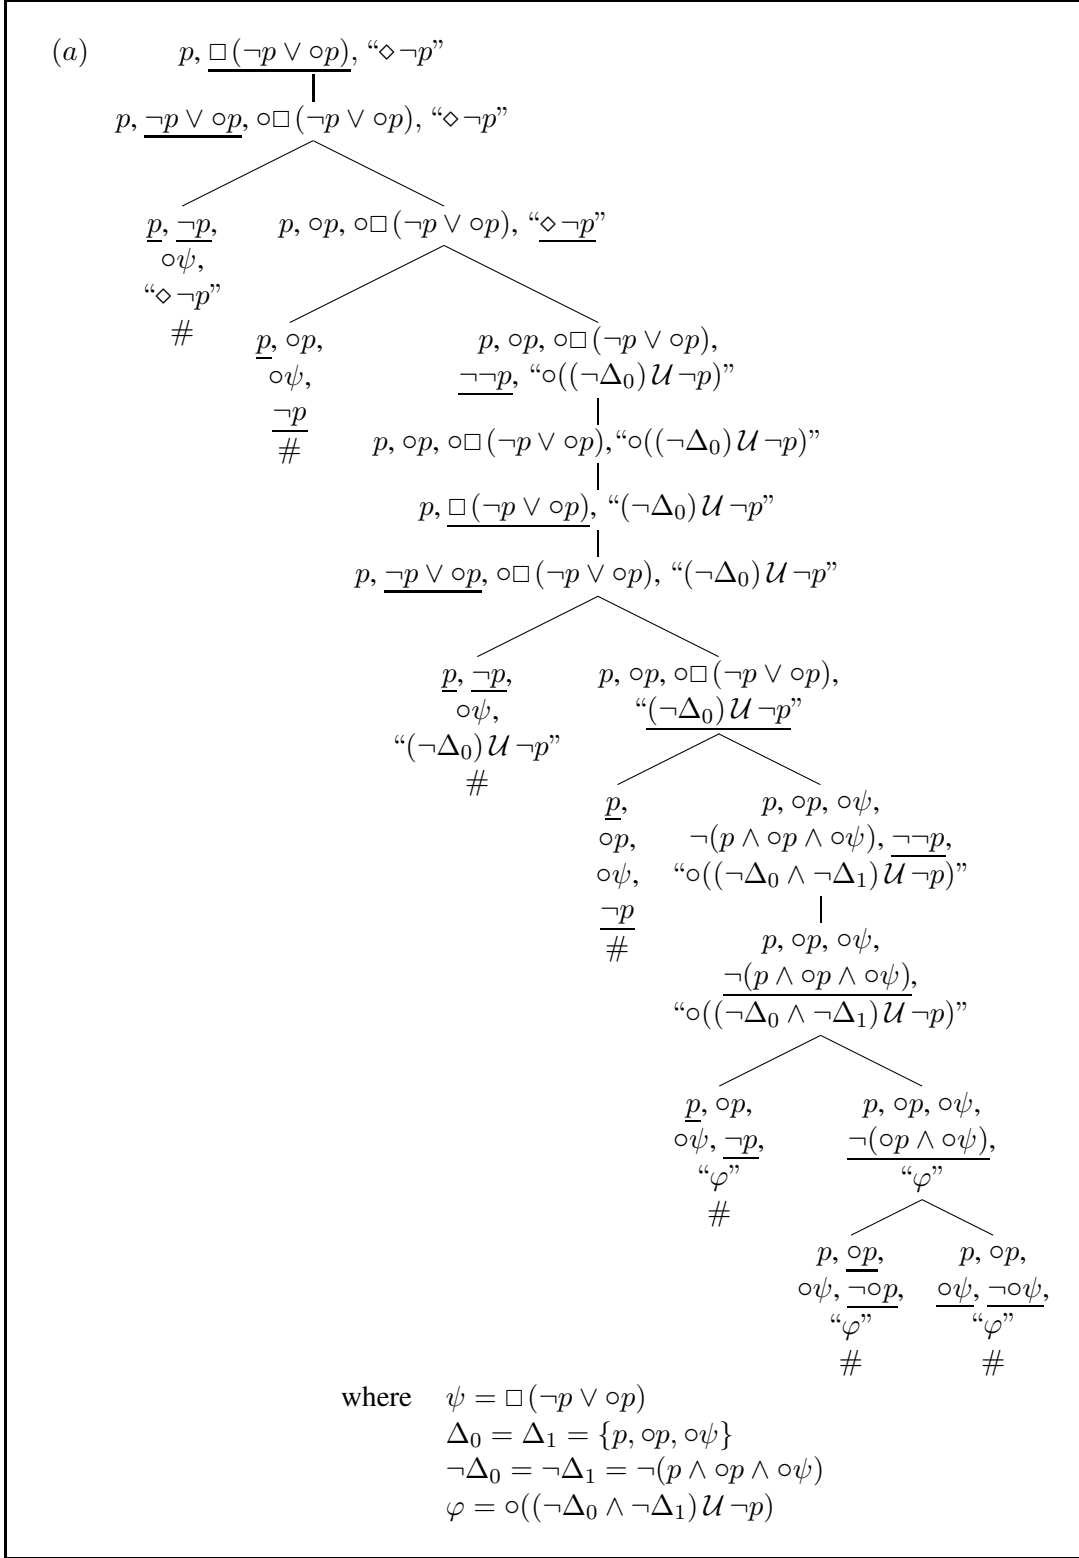 (a) p, □(¬p ∨ ∘p), “◇¬p”
p, ¬p ∨ ∘p, ∘□(¬p ∨ ∘p), “◇¬p”
p, ¬p,
∘ψ,
“◇¬p”
#
p, ∘p, ∘□(¬p ∨ ∘p), “◇¬p”
p, ∘p,
∘ψ,
¬p
#
p, ∘p, ∘□(¬p ∨ ∘p),
¬¬p, “∘((¬Δ₀) 𝒰 ¬p)”
p, ∘p, ∘□(¬p ∨ ∘p),“∘((¬Δ₀) 𝒰 ¬p)”
p, □(¬p ∨ ∘p), “(¬Δ₀) 𝒰 ¬p”
p, ¬p ∨ ∘p, ∘□(¬p ∨ ∘p), “(¬Δ₀) 𝒰 ¬p”
p, ¬p,
∘ψ,
“(¬Δ₀) 𝒰 ¬p”
#
p, ∘p, ∘□(¬p ∨ ∘p),
“(¬Δ₀) 𝒰 ¬p”
p,
∘p,
∘ψ,
¬p
#
p, ∘p, ∘ψ,
¬(p ∧ ∘p ∧ ∘ψ), ¬¬p,
“∘((¬Δ₀ ∧ ¬Δ₁) 𝒰 ¬p)”
p, ∘p, ∘ψ,
¬(p ∧ ∘p ∧ ∘ψ),
“∘((¬Δ₀ ∧ ¬Δ₁) 𝒰 ¬p)”
p, ∘p,
∘ψ, ¬p,
“φ”
#
p, ∘p, ∘ψ,
¬(∘p ∧ ∘ψ),
“φ”
p, ∘p,
∘ψ, ¬∘p,
“φ”
#
p, ∘p,
∘ψ, ¬∘ψ,
“φ”
#
where ψ = □(¬p ∨ ∘p)
Δ₀ = Δ₁ = {p, ∘p, ∘ψ}
¬Δ₀ = ¬Δ₁ = ¬(p ∧ ∘p ∧ ∘ψ)
φ = ∘((¬Δ₀ ∧ ¬Δ₁) 𝒰 ¬p)